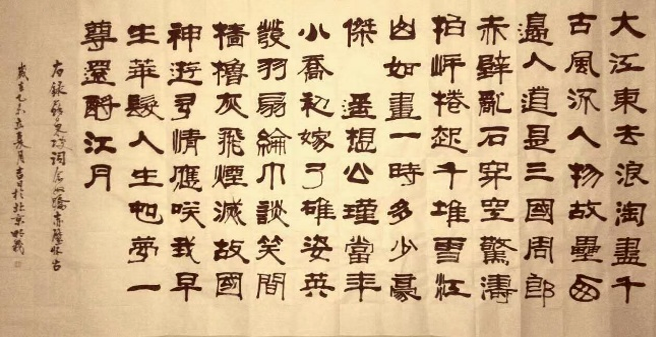 大江東去浪淘盡千
古風流人物故壘西
邊人道是三國周郎
赤壁亂石穿空驚濤
拍岸捲起千堆雪江
山如畫一時多少豪
傑遥想公瑾當年
小喬初嫁了雄姿英
發羽扇綸巾談笑間
檣櫓灰飛煙滅故國
神遊多情應咲我早
生華髮人生如夢一
尊還酹江月
右録蘇東坡詞念奴嬌赤壁懷古
歲在乙未立夏月吉日於北京